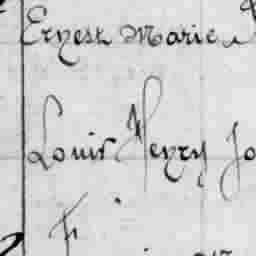 Ernest Marie
Louis Henry Jo